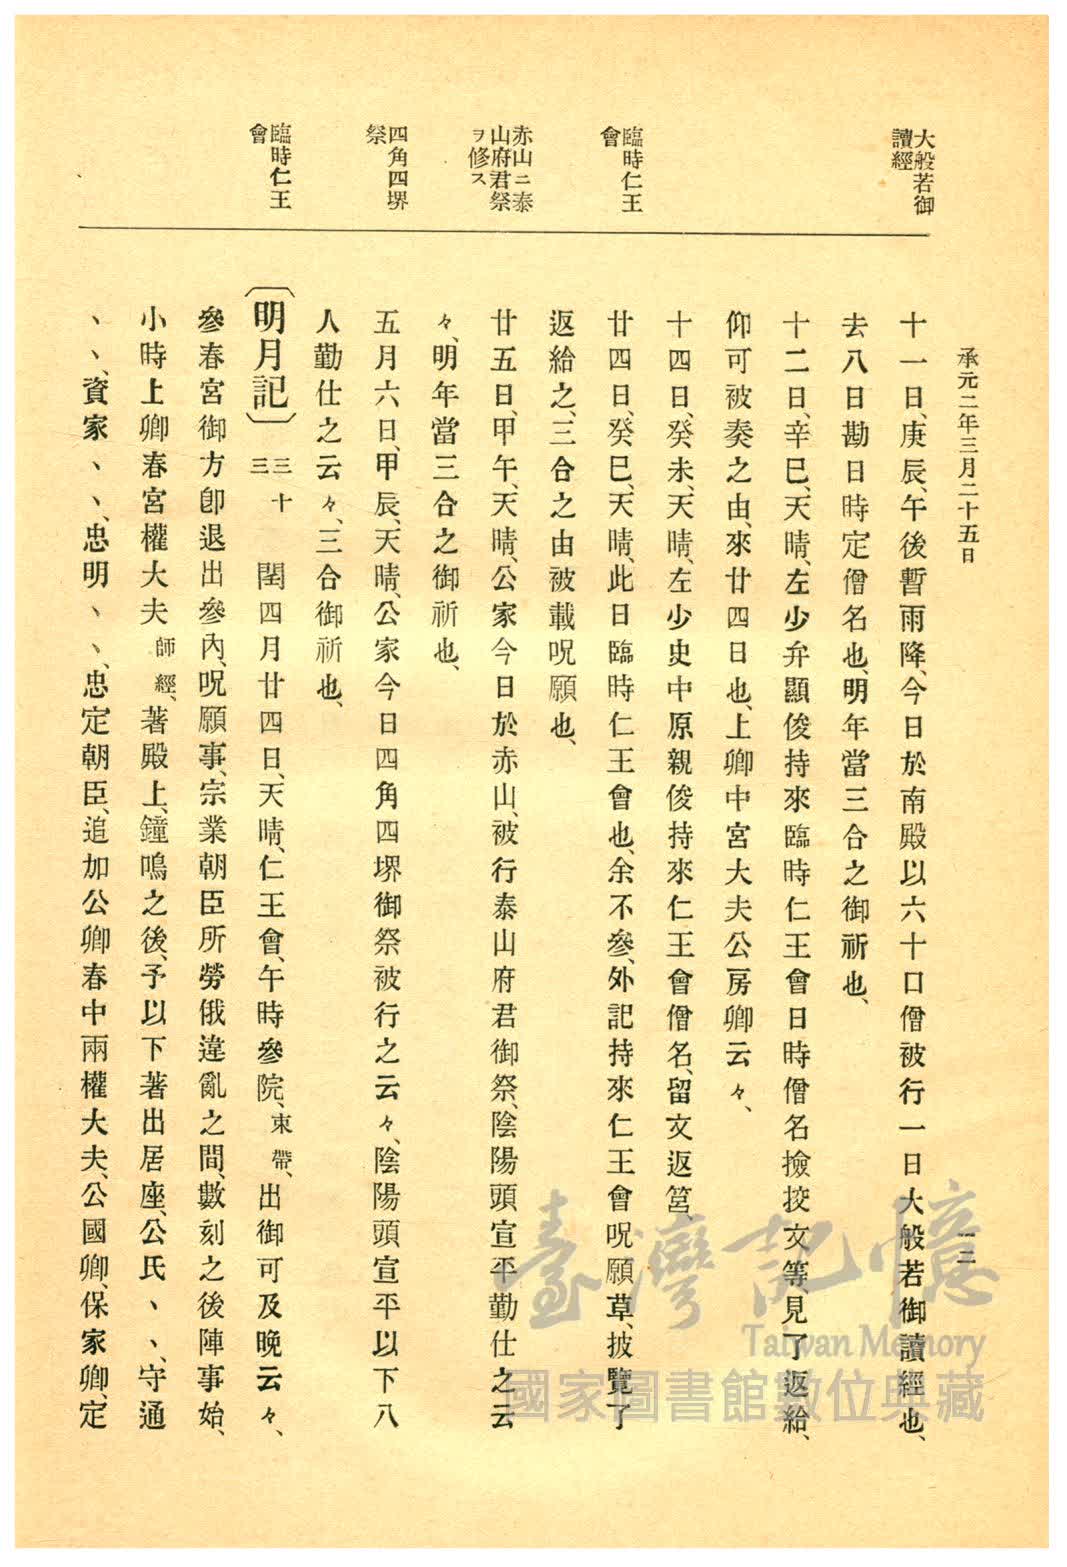 承元二年三月二十五日
一二
大般若御
讀經
臨時仁王
會
赤山ニ泰
山府君祭
ヲ修ス
四角四堺
祭
臨時仁王
會
十一日、庚辰、午後暫雨降、今日於南殿以六十口僧被行一日大般若御讀經也、
去八日勘日時定僧名也、明年當三合之御祈也、
十二日、辛巳、天晴、左少弁顯俊持來臨時仁王會日時僧名撿挍文等、見了返給、
仰可被奏之由、來廿四日也、上卿中宮大夫公房卿云々、
十四日、癸未、天晴、左少史中原親俊持來仁王會僧名、留文返筥、
廿四日、癸巳、天晴、此日臨時仁王會也、余不參、外記持來仁王會呪願草、披覽了
返給之、三合之由被載呪願也、
廿五日、甲午、天晴、公家今日於赤山、被行泰山府君御祭、陰陽頭宣平勤仕之云
々、明年當三合之御祈也、
五月六日、甲辰、天晴、公家今日四角四堺御祭被行之云々、陰陽頭宣平以下八
人勤仕之云々、三合御祈也、
〔明月記〕 三十三 閏四月廿四日、天晴、仁王會、午時參院、束帶、出御可及晩云々、
參春宮御方卽退出參內、呪願事、宗業朝臣所勞俄違亂之間、數刻之後陣事始、
小時上卿春宮權大夫師經、著殿上、鐘鳴之後、予以下著出居座、公氏、ヽヽ、守通
ヽヽ、資家、ヽヽ、忠明、ヽヽ、忠定朝臣、追加公卿春中兩權大夫、公國卿、保家卿、定
臺灣記憶
Taiwan Memory
國家圖書館數位典藏